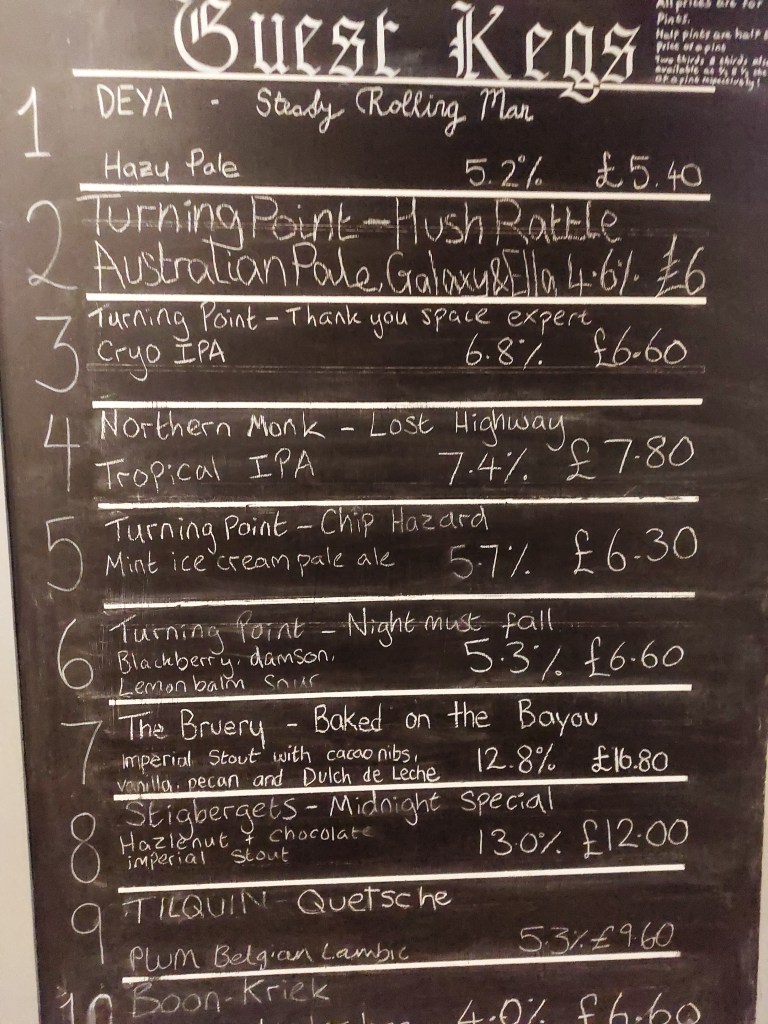 Guest Kegs
All prices are for
Pints.
Half pints are half
Price of a pint
1 DEYA - Steady Rolling Man
Hazy Pale 5.2% £5.40
2 Turning Point - Hush Rattle
Australian Pale, Galaxy & Ella 4.6% £6
3 Turning Point - Thank you space expert
Cryo IPA 6.8% £6.60
4 Northern Monk - Lost Highway
Tropical IPA 7.4% £7.80
5 Turning Point - Chip Hazard
Mint ice cream pale ale 5.7% £6.30
6 Turning Point - Night must fall
Blackberry, damson, 5.3% £6.60
Lemon balm Sour
7 The Bruery - Baked on the Bayou
Imperial Stout with cacao nibs, 12.8% £16.80
vanilla, pecan and Dulch de Leche
8 Stigbergets - Midnight Special
Hazlenut + Chocolate 13.0% £12.00
imperial Stout
9 TILQUIN - Quetsche
Plum Belgian Lambic 5.3% £9.60
10 Boon - Kriek
4.0% £6.60